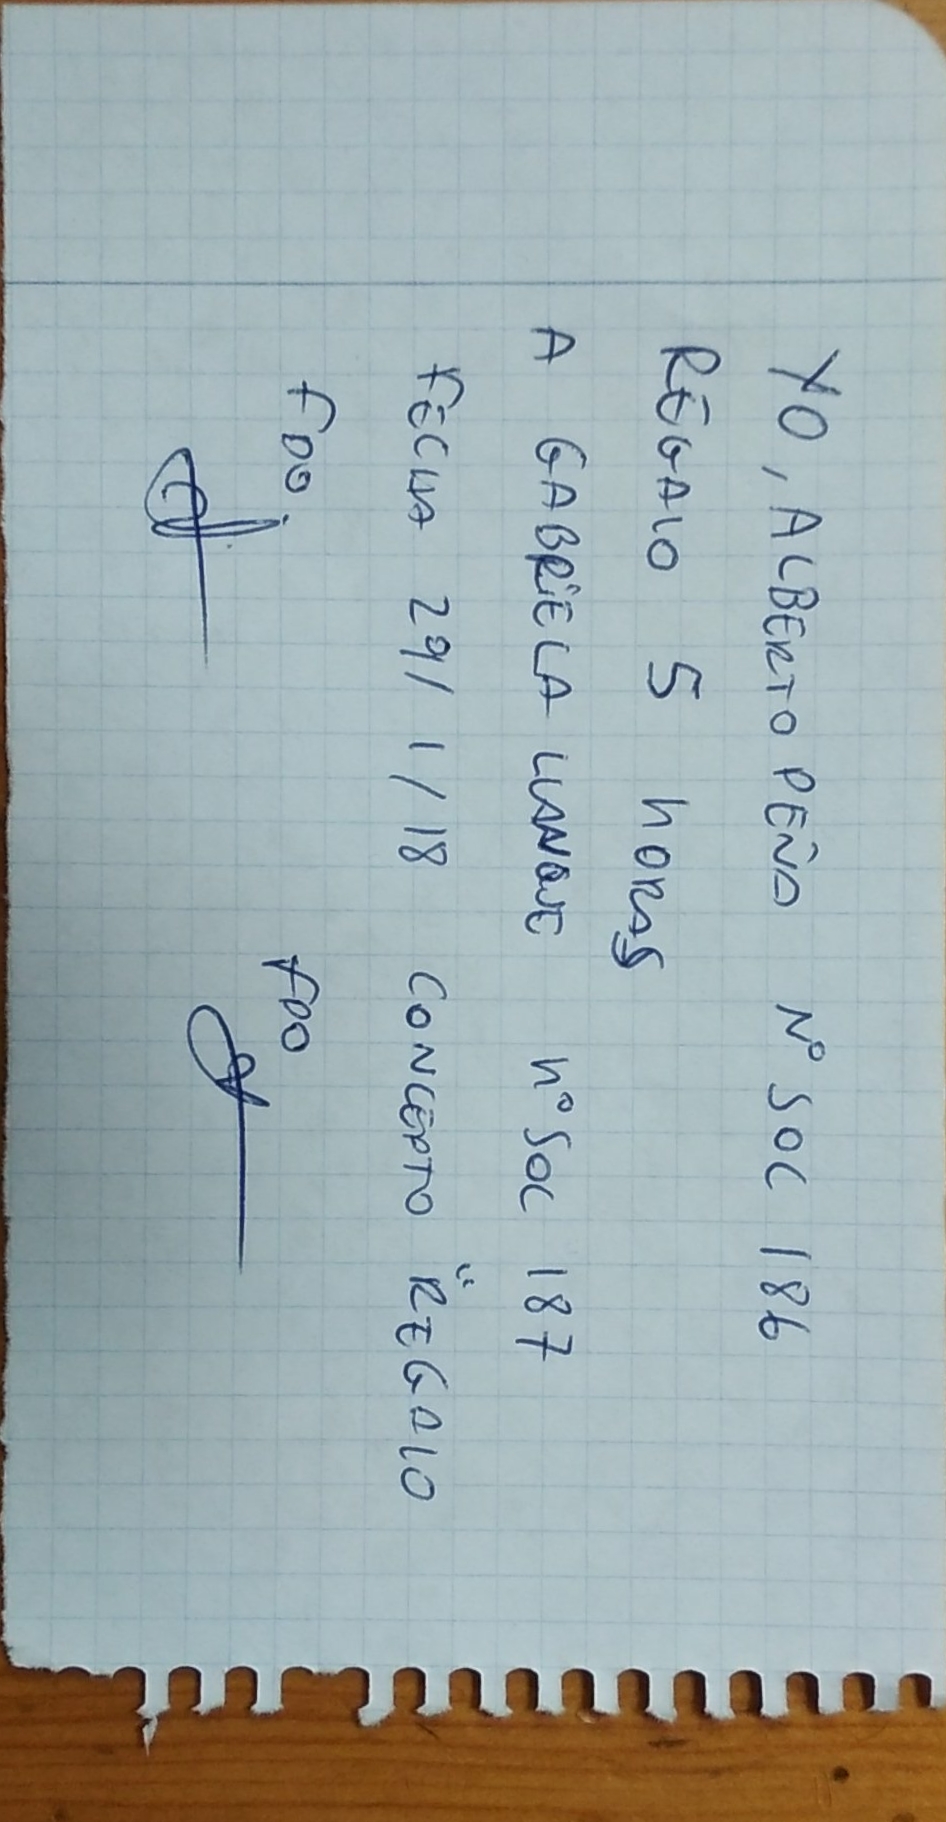 YO, ALBERTO PEÑA Nº SOC 186
REGALO 5 hORAS
A GABRiELA LLANQUE nº SOC 187
FECHA 29/1/18 CONCEPTO "REGALO
FDO.
FDO